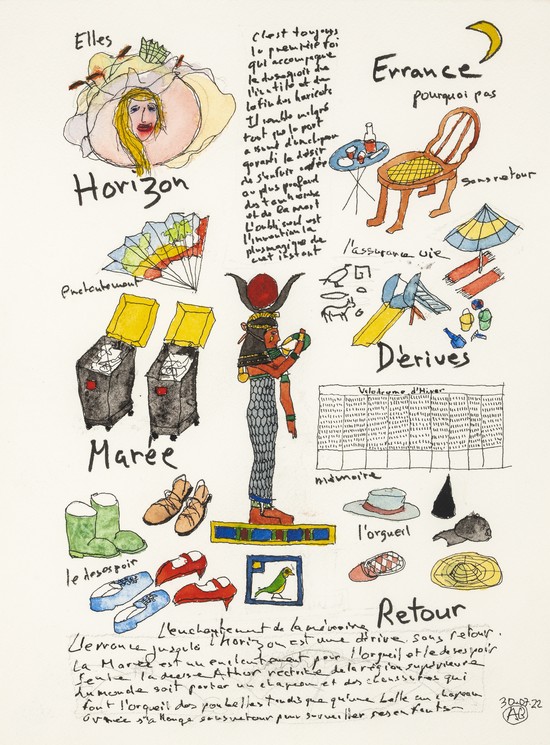 Elles
Horizon
enchantement
Marée
le desespoir
c'est toujours
la première foi
qui accompagne
l'inutile et du
la fin des haricots
Il semble malgré
tout que la part
garanti le désir
de s'enfuir
ou plus profond
et de la mort
L'oubli seul est
l'invention la
plus magique de
cet instant
Errance
pourquoi pas
sans retour
l'assurance vie
Dérives
Velodrome d'Hiver
mémoire
l'orgueil
Retour
L'enchantement de la mémoire
L'errance jusqu'à l'Horizon est une dérive sans retour.
La Marée est un enchantement pour l'orgueil et le desespoir
seule la déesse Athor rectrice de la région supérieure
du monde sait porter un chapeau et des chaussures qui
font l'orgueil des poubelles tandis qu'une belle au chapeau
sans retour pour surveiller ses enfants
30.07.22
AB